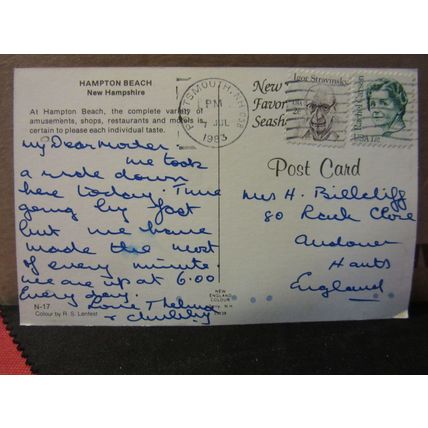 HAMPTON BEACH
New Hampshire
At Hampton Beach, the complete variety of
amusements, shops, restaurants and motels is
certain to please each individual taste.
My Dear Mother
we took
a ride down
here today. Time
going by fast
but we have
made the most
of every minute
we are up at 6.00
Every day.
Love Thelma
+
N-17
Colour by R. S. Lentest
PORTSMOUTH, NH 038
PM
7 JUL
1983
New
Favor
Seash
Igor Stravinsky
USA 2c
Rachel Carson
USA 17c
Post Card
Mrs H. Billcliff
80 Close
Andover
Hants
England
NEW
ENGLAND
COLOUR
N.H.